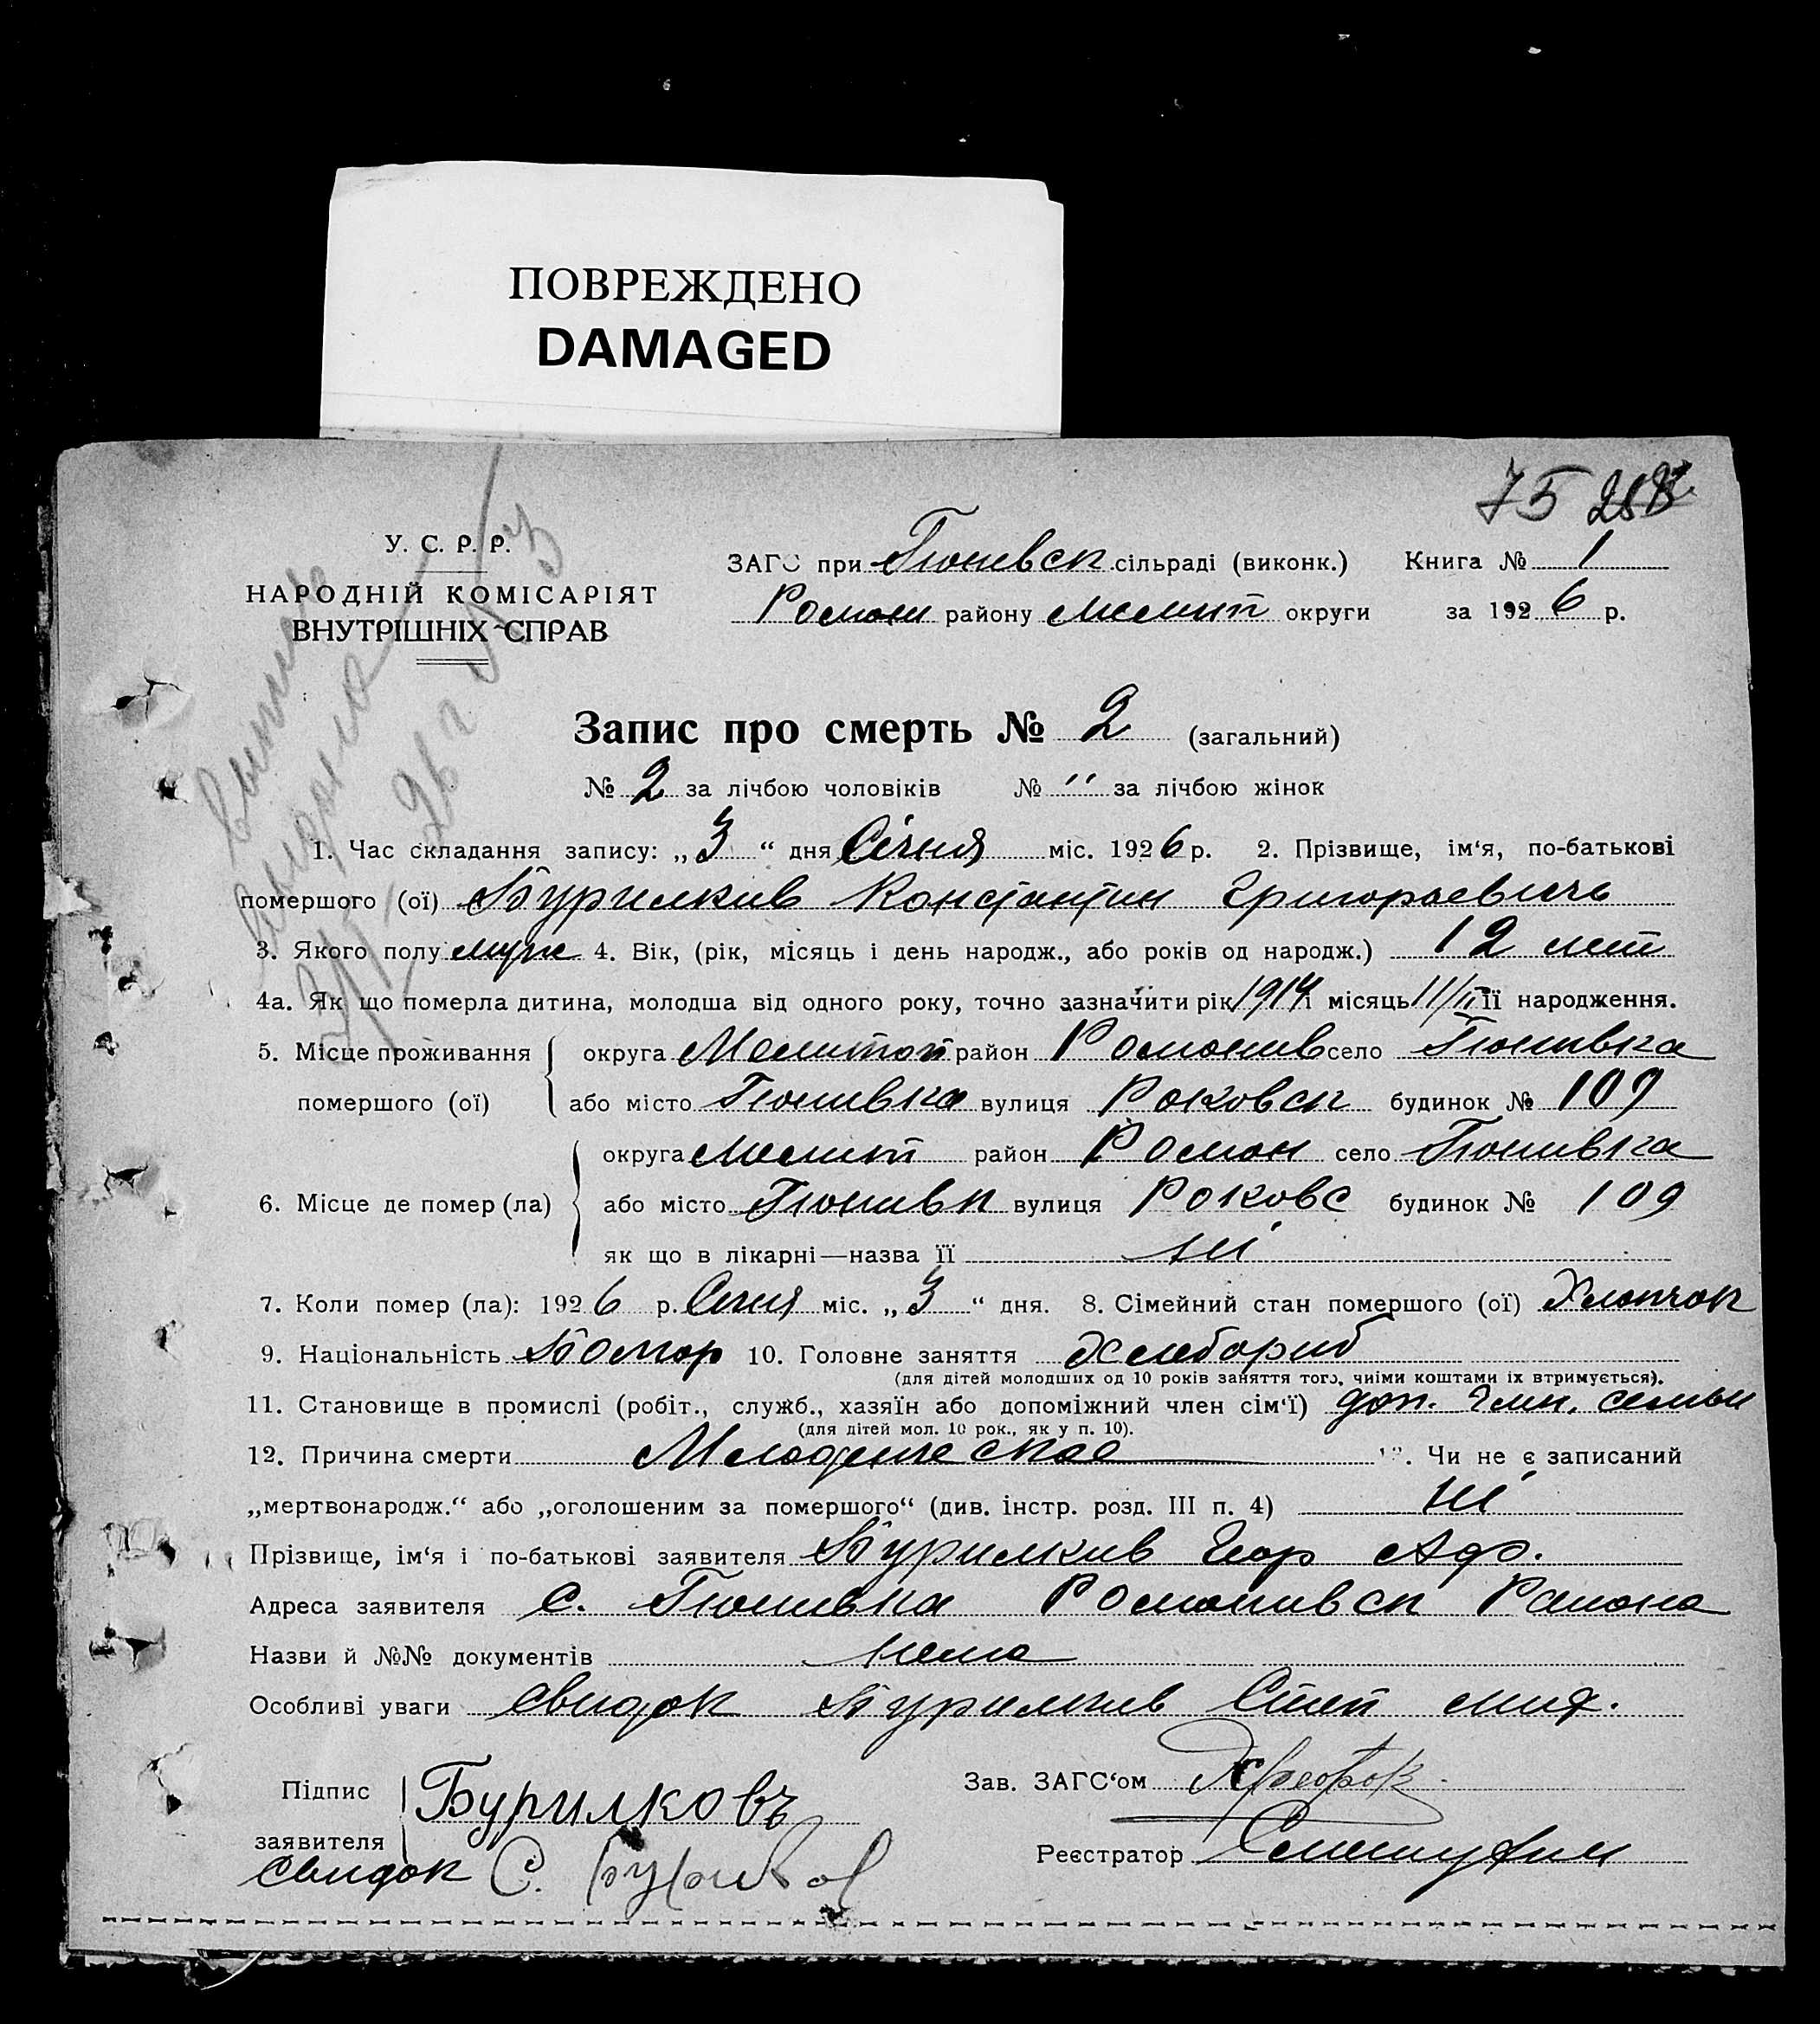 ПОВРЕЖДЕНО
DAMAGED
75
У. С. Р. Р.
НАРОДНІЙ КОМІСАРІЯТ
ВНУТРІШНІХ СПРАВ
ЗАГС при Гюневск сільраді (виконк.) Книга № 1
Роман району Мелит округи за 1926 р.
Запис про смерть № 2 (загальний)
№ 2 за лічбою чоловіків № " за лічбою жінок
1. Час складання запису: „3“ дня Січня міс. 1926 р. 2. Прізвище, ім‘я, по-батькові
помершого (ої) Бурилкив Константин Григорьевичь
3. Якого полу муж 4. Вік, (рік, місяць і день народж., або років од народж.) 12 лет
4а. Як що померла дитина, молодша від одного року, точно зазначити рік 1914 і місяць 11/II її народження.
5. Місце проживання округа Мелитоп район Романив село Гюнивка
помершого (ої) або місто Гюнивка вулиця Роковск будинок № 109
округа Мелит район Роман село Гюнивка
6. Місце де помер (ла) або місто Гюнивк вулиця Роковс будинок № 109
як що в лікарні—назва її ні
7. Коли помер (ла): 1926 р. Січня міс. „3“ дня. 8. Сімейний стан помершого (ої) Хлопчок
9. Національність Болгар 10. Головне заняття Хлебориб
(для дітей молодших од 10 років заняття того, чиїми коштами їх втримується).
11. Становище в промислі (робіт., служб., хазяїн або допоміжний член сім‘ї) доп. член. семьи
(для дітей мол. 10 рок., як у п. 10).
12. Причина смерти Младенческае 13. Чи не є записаний
„мертвонародж.“ або „оголошеним за помершого“ (див. інстр. розд. III п. 4) ні
Прізвище, ім‘я і по-батькові заявителя Бурилкив Геор Аф.
Адреса заявителя с. Гюнивка Романивск Раиона
Назви й №№ документів нема
Особливі уваги Свидок Бурилкив Степ мих.
Підпис Бурилковъ Зав. ЗАГС‘ом
заявителя
Реєстратор
Свидок С.